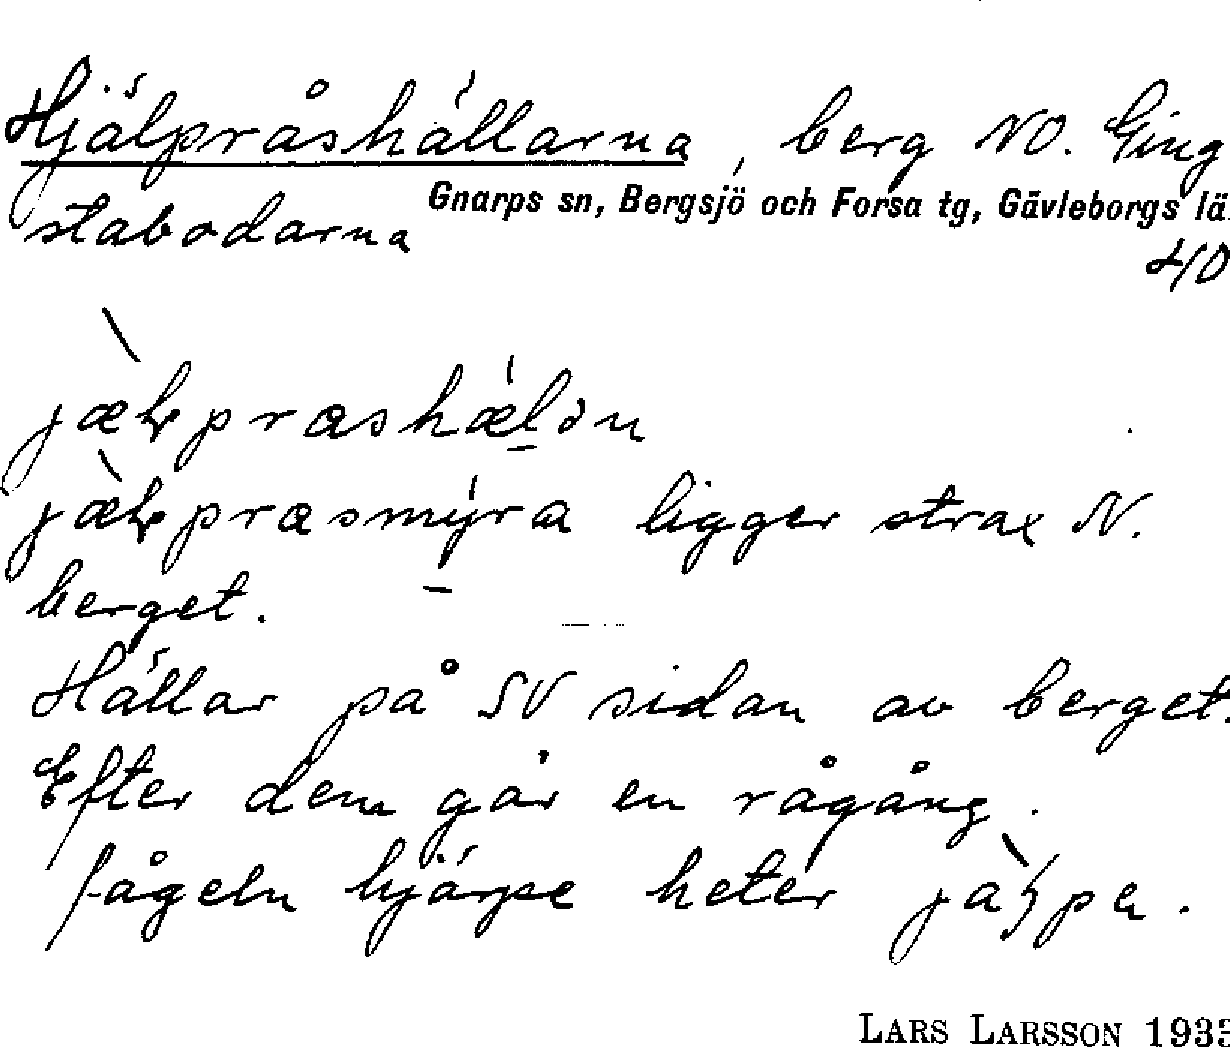 Hjälpråshällarna, berg NO. Ging
Gnarps sn, Bergsjö och Forsa tg, Gävleborgs lä
stabodarna
ligger strax N.
berget.
Hällar på SV sidan av berget.
Efter dem går en rågång.
fågeln hjärpe heter
LARS LARSSON 1933